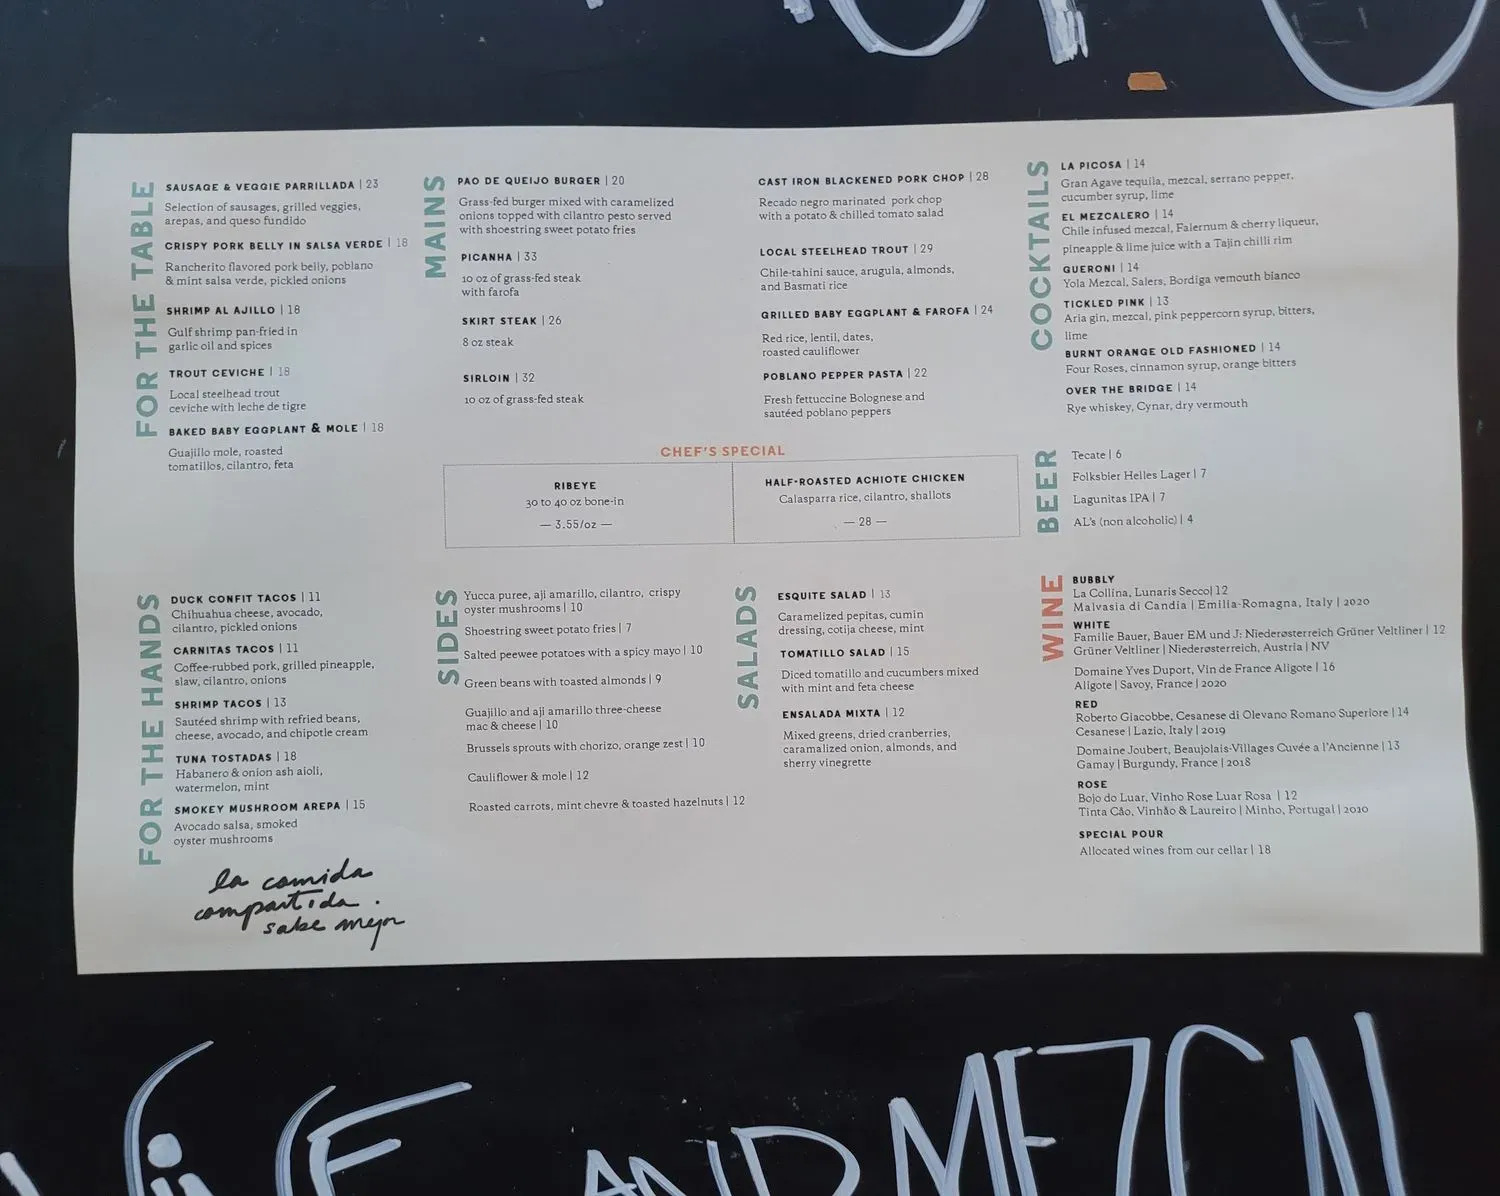 FOR THE TABLE
SAUSAGE & VEGGIE PARRILLADA | 23
Selection of sausages, grilled veggies,
arepas, and queso fundido
CRISPY PORK BELLY IN SALSA VERDE | 18
Rancherito flavored pork belly, poblano
& mint salsa verde, pickled onions
SHRIMP AL AJILLO | 18
Gulf shrimp pan-fried in
garlic oil and spices
TROUT CEVICHE | 18
Local steelhead trout
ceviche with leche de tigre
BAKED BABY EGGPLANT & MOLE | 18
Guajillo mole, roasted
tomatillos, cilantro, feta
MAINS
PAO DE QUEIJO BURGER | 20
Grass-fed burger mixed with caramelized
onions topped with cilantro pesto served
with shoestring sweet potato fries
PICANHA | 33
10 oz of grass-fed steak
with farofa
SKIRT STEAK | 26
8 oz steak
SIRLOIN | 32
10 oz of grass-fed steak
CAST IRON BLACKENED PORK CHOP | 28
Recado negro marinated pork chop
with a potato & chilled tomato salad
LOCAL STEELHEAD TROUT | 29
Chile-tahini sauce, arugula, almonds,
and Basmati rice
GRILLED BABY EGGPLANT & FAROFA | 24
Red rice, lentil, dates,
roasted cauliflower
POBLANO PEPPER PASTA | 22
Fresh fettuccine Bolognese and
sautéed poblano peppers
CHEF'S SPECIAL
RIBEYE
30 to 40 oz bone-in
— 3.55/oz —
HALF-ROASTED ACHIOTE CHICKEN
Calasparra rice, cilantro, shallots
— 28 —
COCKTAILS
LA PICOSA | 14
Gran Agave tequila, mezcal, serrano pepper,
cucumber syrup, lime
EL MEZCALERO | 14
Chile infused mezcal, Falernum & cherry liqueur,
pineapple & lime juice with a Tajin chilli rim
QUERONI | 14
Yola Mezcal, Salers, Bordiga vemouth bianco
TICKLED PINK | 13
Aria gin, mezcal, pink peppercorn syrup, bitters,
lime
BURNT ORANGE OLD FASHIONED | 14
Four Roses, cinnamon syrup, orange bitters
OVER THE BRIDGE | 14
Rye whiskey, Cynar, dry vermouth
BEER
Tecate | 6
Folksbier Helles Lager | 7
Lagunitas IPA | 7
AL's (non alcoholic) | 4
FOR THE HANDS
DUCK CONFIT TACOS | 11
Chihuahua cheese, avocado,
cilantro, pickled onions
CARNITAS TACOS | 11
Coffee-rubbed pork, grilled pineapple,
slaw, cilantro, onions
SHRIMP TACOS | 13
Sautéed shrimp with refried beans,
cheese, avocado, and chipotle cream
TUNA TOSTADAS | 18
Habanero & onion ash aioli,
watermelon, mint
SMOKEY MUSHROOM AREPA | 15
Avocado salsa, smoked
oyster mushrooms
la comida
compartida.
sabe mejor
SIDES
Yucca puree, aji amarillo, cilantro, crispy
oyster mushrooms | 10
Shoestring sweet potato fries | 7
Salted peewee potatoes with a spicy mayo | 10
Green beans with toasted almonds | 9
Guajillo and aji amarillo three-cheese
mac & cheese | 10
Brussels sprouts with chorizo, orange zest | 10
Cauliflower & mole | 12
Roasted carrots, mint chevre & toasted hazelnuts | 12
SALADS
ESQUITE SALAD | 13
Caramelized pepitas, cumin
dressing, cotija cheese, mint
TOMATILLO SALAD | 15
Diced tomatillo and cucumbers mixed
with mint and feta cheese
ENSALADA MIXTA | 12
Mixed greens, dried cranberries,
caramalized onion, almonds, and
sherry vinegrette
WINE
BUBBLY
La Collina, Lunaris Secco| 12
Malvasia di Candia | Emilia-Romagna, Italy | 2020
WHITE
Familie Bauer, Bauer EM und J: Niederøsterreich Grüner Veltliner | 12
Grüner Veltliner | Niederøsterreich, Austria | NV
Domaine Yves Duport, Vin de France Aligote | 16
Aligote | Savoy, France | 2020
RED
Roberto Giacobbe, Cesanese di Olevano Romano Superiore | 14
Cesanese | Lazio, Italy | 2019
Domaine Joubert, Beaujolais-Villages Cuvée a l'Ancienne | 13
Gamay | Burgundy, France | 2018
ROSE
Bojo do Luar, Vinho Rose Luar Rosa | 12
Tinta Cão, Vinhão & Laureiro | Minho, Portugal | 2020
SPECIAL POUR
Allocated wines from our cellar | 18
AND MEZCA